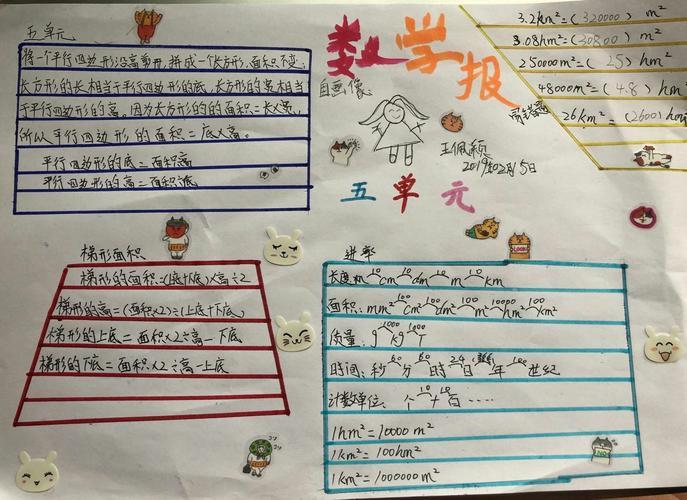 五单元
将一个平行四边形沿高剪开,拼成一个长方形,面积不变,
长方形的长相当于平行四边形的底,长方形的宽相当
于平行四边形的高。因为长方形的的面积=长×宽,
所以平行四边形的面积=底×高。
平行四边形的底=面积÷高
平行四边形的高=面积÷底
数学报
自画像:
王佩颖
五单元
3.2km²=(320000) m²
3.08hm²=(30800) m²
250000m²=(25) hm²
48000m²=(4.8) hm²
26km²=(2600) hm²
梯形面积
梯形的面积=(上底+下底)×高÷2
梯形的高=(面积×2)÷(上底+下底)
梯形的上底=面积×2÷高-下底
梯形的下底=面积×2÷高-上底
进率
长度:m 10 cm 10 dm 10 m 10 km
面积:mm² 100 cm² 100 dm² 100 m² 10000 hm² 100 km²
质量:g 1000 kg 1000 T
时间:秒 60 分 60 时 24 日 年 100 世纪
计数单位:个 10 十 10 百……
1hm²=10000m²
1km²=100hm²
1km²=1000000m²